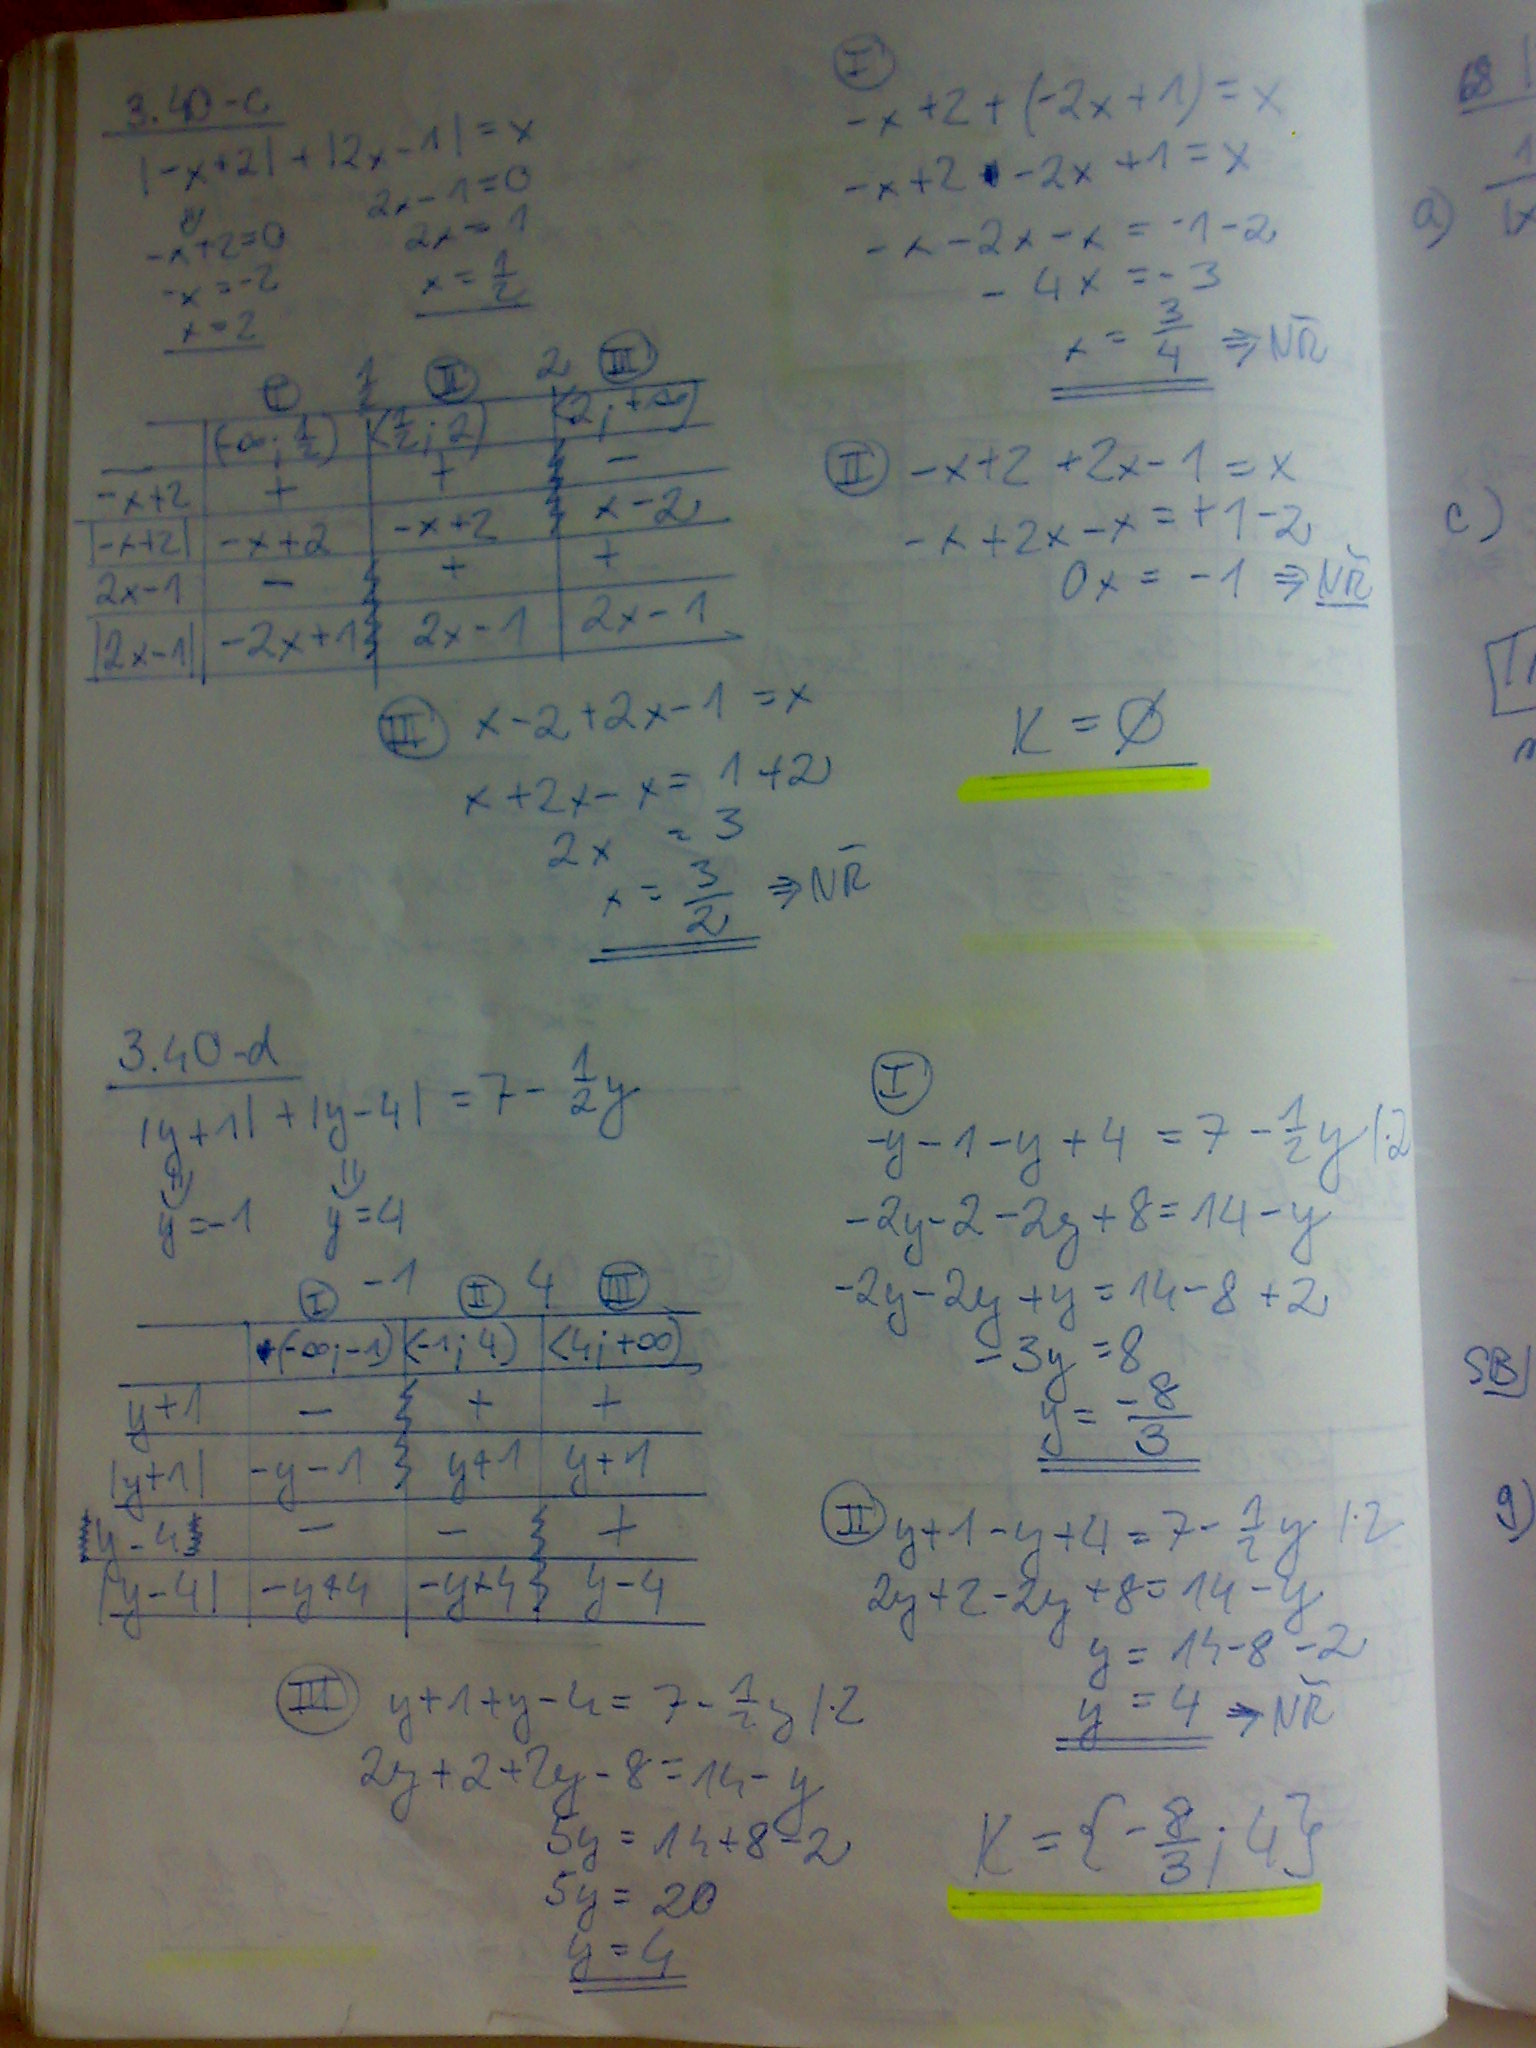 3.40-c
|-x+2| + |2x-1| = x
-x+2=0 2x-1=0
-x=-2 2x=1
x=2 x=1/2
I 1/2 II 2 III
(-∞;1/2) <1/2;2) <2;+∞)
-x+2 + + -
|-x+2| -x+2 -x+2 x-2
2x-1 - + +
|2x-1| -2x+1 2x-1 2x-1
I
-x+2+(-2x+1)=x
-x+2-2x+1=x
-x-2x-x=-1-2
-4x=-3
x=3/4 ⇒NŘ
II -x+2+2x-1=x
-x+2x-x=+1-2
0x=-1 ⇒NŘ
III x-2+2x-1=x
x+2x-x=1+2
2x=3
x=3/2 ⇒NŘ
K=∅
3.40-d
|y+1|+|y-4|=7-1/2y
y=-1 y=4
I -1 II 4 III
(-∞;-1) <-1;4) <4;+∞)
y+1 - + +
|y+1| -y-1 y+1 y+1
y-4 - - +
|y-4| -y+4 -y+4 y-4
I
-y-1-y+4=7-1/2y |·2
-2y-2-2y+8=14-y
-2y-2y+y=14-8+2
-3y=8
y=-8/3
II y+1-y+4=7-1/2y |·2
2y+2-2y+8=14-y
y=14-8-2
y=4 ⇒NŘ
III y+1+y-4=7-1/2y |·2
2y+2+2y-8=14-y
5y=14+8-2
5y=20
y=4
K={-8/3;4}
68
a) 1
c)
SB
g)